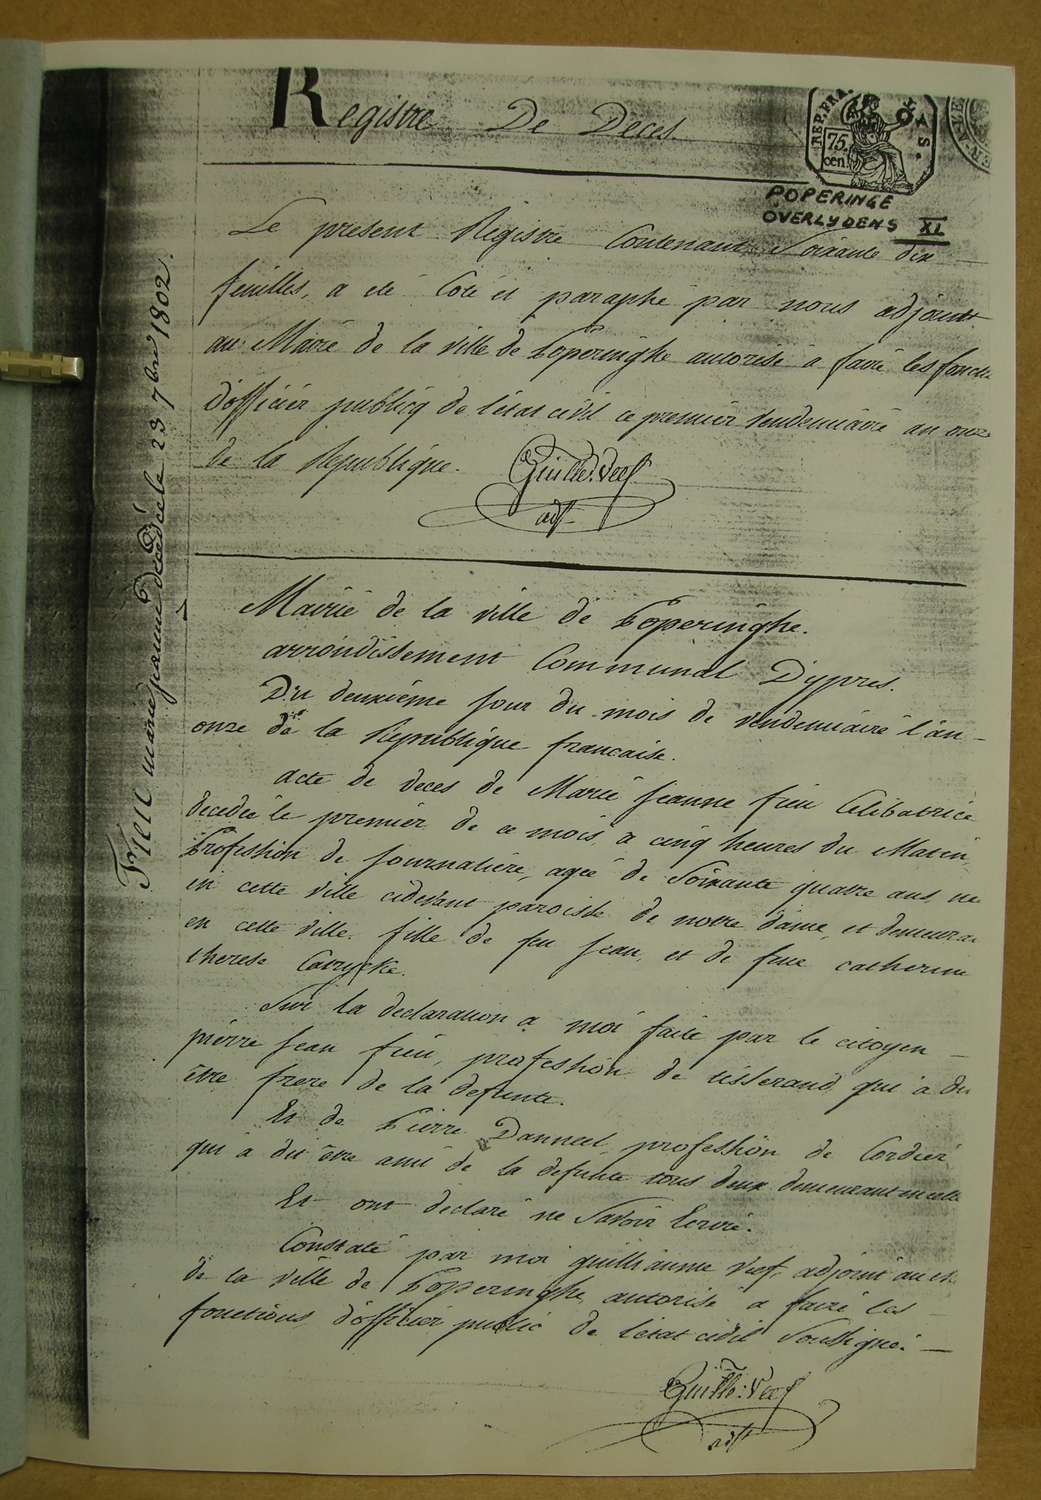 Registre De Deces
REP. FRA.
75.
cen.
POPERINGE
OVERLYDENS XI
Le present Registre Contenant Soixante dix
feuilles, a eté Coté et paraphé par nous adjoint
au Mairé de la ville de Poperinghe autorisé a fairé les fonct
d'officiér publicq de l'état civil ce premiér vendemiairé an onze
de la République. Guille: Veef
adjt
Frieu marie jeanne decédée le 23 7bre 1802.
1
Mairié de la ville de Poperinghe.
arrondissement Communal D'ypres.
Du deuxiéme jour du mois de vendemiairé l'an
onze de la République francaise.
acte de deces de Marié Jeanne frieu Celibatricé
decedeé le premiér de ce mois, a cinq heures du Matin,
Profession de journaliére, ageé de Soixante quatre ans, né
en cette ville cidevant paroisse de notre dame, et demeuran
en cette ville. fille de feu Jean, et de feue catherine
therese
Sur la declaration a moi faite par le citoyen
pierre Jean frieu, profession de tisserand qui a dit
étre frere de la defunte.
Et de Pierre Danneel profession de Cordiér
qui a dit étre amé de la defunte tous deux demeurant en cette
Et ont declaré ne Savoir Ecrire.
Constaté par moi guilliaume Veef, adjoint au
de la ville de Poperinghe autorisé a fairé les
fonctions d'officiér public de l'état civil Soussigné.
Guille: Veef
adjt